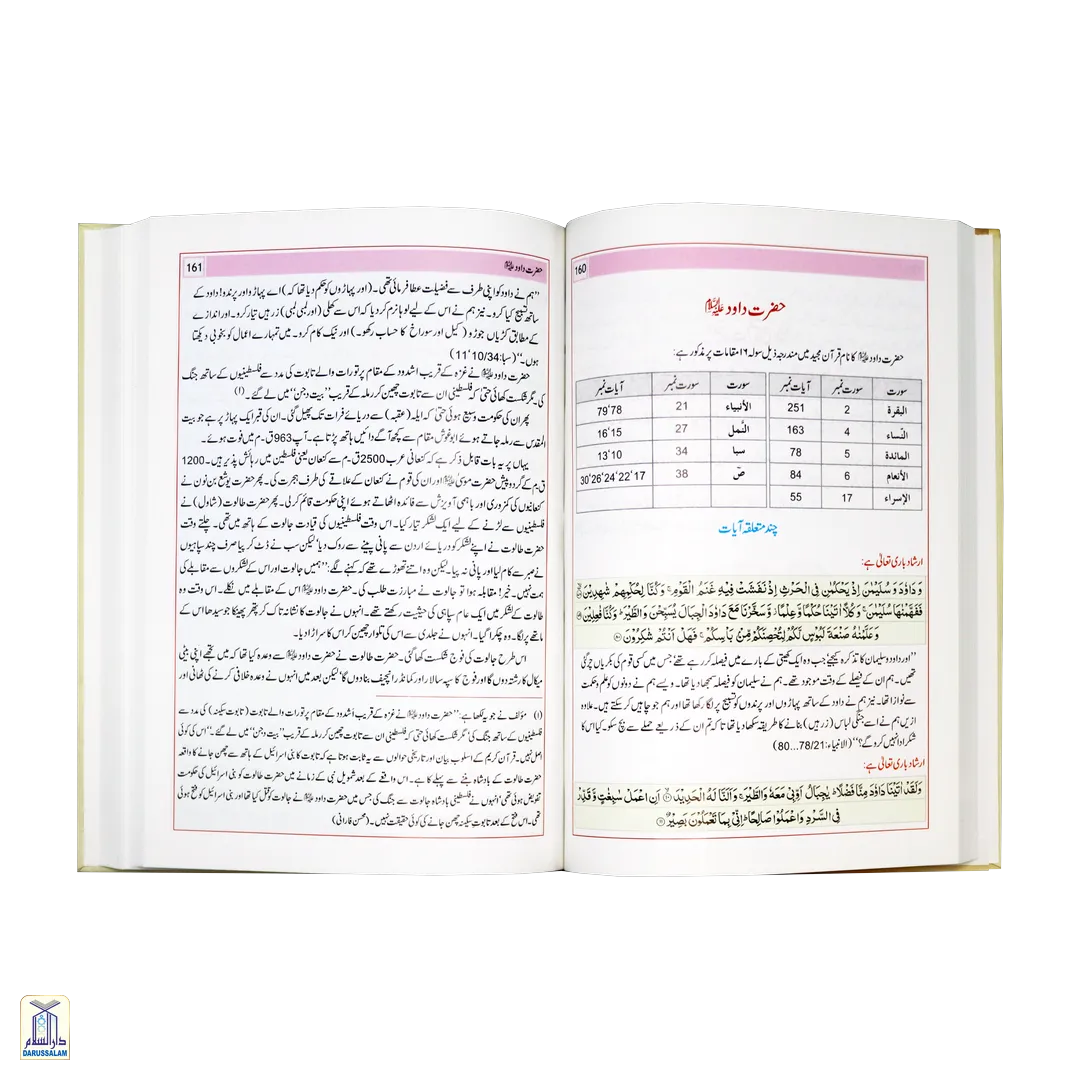 160
حضرت داود علیہ السلام
حضرت داود علیہ السلام کا نام قرآن مجید میں مندرجہ ذیل سولہ ۱۶ مقامات پر مذکور ہے:
سورت سورت نمبر آیات نمبر سورت سورت نمبر آیات نمبر
البقرة 2 251 الأنبیاء 21 79'78
النّساء 4 163 النَّمل 27 16'15
المائدة 5 78 سبا 34 13'10
الأنعام 6 84 صٓ 38 30'26'24'22'17
الإسراء 17 55
چند متعلقہ آیات
ارشاد باری تعالیٰ ہے:
وَ دَاوٗدَ وَ سُلَيْمٰنَ اِذْ يَحْكُمٰنِ فِي الْحَرْثِ اِذْ نَفَشَتْ فِيْهِ غَنَمُ الْقَوْمِ ۚ وَ كُنَّا لِحُكْمِهِمْ شٰهِدِيْنَ
فَفَهَّمْنٰهَا سُلَيْمٰنَ ۚ وَ كُلًّا اٰتَيْنَا حُكْمًا وَّ عِلْمًا ۫ وَّ سَخَّرْنَا مَعَ دَاوٗدَ الْجِبَالَ يُسَبِّحْنَ وَ الطَّيْرَ ؕ وَ كُنَّا فٰعِلِيْنَ
وَ عَلَّمْنٰهُ صَنْعَةَ لَبُوْسٍ لَّكُمْ لِتُحْصِنَكُمْ مِّنْۢ بَاْسِكُمْ ۚ فَهَلْ اَنْتُمْ شٰكِرُوْنَ
"اور داود و سلیمان کا تذکرہ کیجیے جب وہ ایک کھیتی کے بارے میں فیصلہ کر رہے تھے' جس میں کسی قوم کی بکریاں چر گئی
تھیں۔ ہم ان کے فیصلے کے وقت موجود تھے۔ ہم نے سلیمان کو فیصلہ سمجھا دیا تھا۔ ویسے ہم نے دونوں کو علم و حکمت
سے نوازا تھا۔ نیز ہم نے داود کے ساتھ پہاڑوں اور پرندوں کو تسبیح پر لگا رکھا تھا اور ہم جو چاہیں کر سکتے ہیں۔ علاوہ
ازیں ہم نے اسے جنگی لباس (زرہیں) بنانے کا طریقہ سکھا دیا تھا تاکہ تم ان کے ذریعے حملے سے بچ سکو۔ کیا اس کا
شکر ادا نہیں کرو گے؟" (الانبیاء:78/21...80)
ارشاد باری تعالیٰ ہے:
وَ لَقَدْ اٰتَيْنَا دَاوٗدَ مِنَّا فَضْلًا ؕ يٰجِبَالُ اَوِّبِيْ مَعَهٗ وَ الطَّيْرَ ۚ وَ اَلَنَّا لَهُ الْحَدِيْدَ ۙ اَنِ اعْمَلْ سٰبِغٰتٍ وَّ قَدِّرْ
فِي السَّرْدِ وَ اعْمَلُوْا صَالِحًا ؕ اِنِّيْ بِمَا تَعْمَلُوْنَ بَصِيْرٌ
حضرت داود علیہ السلام 161
"ہم نے داود کو اپنی طرف سے فضیلت عطا فرمائی تھی۔ (اور پہاڑوں کو حکم دیا تھا کہ) اے پہاڑو اور پرندو! داود کے
ساتھ تسبیح کیا کرو۔ نیز ہم نے اس کے لیے لوہا نرم کر دیا کہ اس سے کھلی (اور لمبی لمبی) زرہیں تیار کرو۔ اور اندازے
کے مطابق کڑیاں جوڑو (کیل اور سوراخ کا حساب رکھو۔) اور نیک کام کرو۔ میں تمہارے اعمال کو بخوبی دیکھتا
ہوں۔" (سبا:10/34'11)
حضرت داود علیہ السلام نے غزہ کے قریب اشدود کے مقام پر تورات والے تابوت کی مدد سے فلسطینیوں کے ساتھ جنگ
کی۔ مگر شکست کھائی حتی کہ فلسطینی ان سے تابوت چھین کر رملہ کے قریب "بیت دجن" میں لے گئے۔ (۱)
پھر ان کی حکومت وسیع ہوئی حتی کہ ایلہ۔ (عقبہ) سے دریائے فرات تک پھیل گئی۔ ان کی قبر ایک پہاڑ پر ہے جو بیت
المقدس سے رملہ جاتے ہوئے ابوغوش مقام سے کچھ آگے دائیں ہاتھ پڑتا ہے۔ آپ 963 ق۔م میں فوت ہوئے۔
یہاں پر یہ بات قابل ذکر ہے کہ کنعانی عرب 2500 ق۔م سے کنعان یعنی فلسطین میں رہائش پذیر ہیں۔ 1200
ق۔م کے گرد و پیش حضرت موسیٰ علیہ السلام اور ان کی قوم نے کنعان کے علاقے کی طرف ہجرت کی۔ پھر حضرت یوشع بن نون نے
کنعانیوں کی کمزوری اور باہمی آویزش سے فائدہ اٹھاتے ہوئے اپنی حکومت قائم کر لی۔ پھر حضرت طالوت (شاول) نے
فلسطینیوں سے لڑنے کے لیے ایک لشکر تیار کیا۔ اس وقت فلسطینیوں کی قیادت جالوت کے ہاتھ میں تھی۔ چلتے وقت
حضرت طالوت نے اپنے لشکر کو دریائے اردن سے پانی پینے سے روک دیا' لیکن سب نے ڈٹ کر پیا صرف چند سپاہیوں
نے صبر سے کام لیا اور پانی نہ پیا۔ لیکن وہ اتنے تھوڑے تھے کہ کہنے لگے: "ہمیں جالوت اور اس کے لشکروں سے مقابلے کی
ہمت نہیں۔ خیر! مقابلہ ہوا تو جالوت نے مبارزت طلب کی۔ حضرت داود علیہ السلام اس کے مقابلے میں نکلے۔ اس وقت وہ
طالوت کے لشکر میں ایک عام سپاہی کی حیثیت رکھتے تھے۔ انہوں نے جالوت کا نشانہ تاک کر پتھر پھینکا جو سیدھا اس کے
ماتھے پر لگا۔ وہ چکرا گیا۔ انہوں نے جلدی سے اس کی تلوار چھین کر اس کا سر اڑا دیا۔
اس طرح جالوت کی فوج شکست کھا گئی۔ حضرت طالوت نے حضرت داود علیہ السلام سے وعدہ کیا تھا کہ میں تجھے اپنی بیٹی
میکال کا رشتہ دوں گا اور فوج کا سپہ سالار اور کمانڈر انچیف بنا دوں گا' لیکن بعد میں انہوں نے وعدہ خلافی کرنے کی ٹھانی اور
(۱) مؤلف نے جو یہ لکھا ہے: "حضرت داود علیہ السلام نے غزہ کے قریب اشدود کے مقام پر تورات والے تابوت (تابوت سکینہ) کی مدد سے
فلسطینیوں کے ساتھ جنگ کی' مگر شکست کھائی حتی کہ فلسطینی ان سے تابوت چھین کر رملہ کے قریب "بیت دجن" میں لے گئے۔" اس کی کوئی
اصل نہیں۔ قرآن کریم کے اسلوب بیان اور تاریخی حوالوں سے یہ ثابت ہوتا ہے کہ تابوت کا بنی اسرائیل کے ہاتھ سے چھن جانے کا واقعہ
حضرت طالوت کے بادشاہ بننے سے پہلے کا ہے۔ اس واقعے کے بعد شموئیل نبی کے زمانے میں حضرت طالوت کو بنی اسرائیل کی حکومت
تفویض ہوئی تھی' انہوں نے فلسطینی بادشاہ جالوت سے جنگ کی جس میں حضرت داود علیہ السلام نے جالوت کو قتل کیا تھا اور بنی اسرائیل کو فتح ہوئی
تھی۔ اس فتح کے بعد تابوت سکینہ چھن جانے کی کوئی حقیقت نہیں۔ (محسن فارانی)
دارالسلام
DARUSSALAM